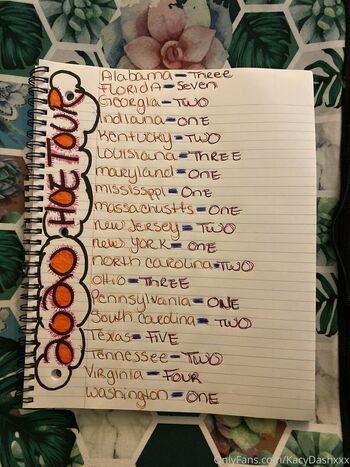 2020 HOE TOUR
Alabama - Three
Florida - Seven
Georgia - TWO
Indiana - ONE
Kentucky - TWO
Louisiana - THREE
maryland - ONE
mississippi - One
massachustts - ONE
new Jersey - TWO
new York - ONE
north Carolina - TWO
Ohio - THREE
Pennsylvania - ONE
South Carolina - TWO
Texas - FIVE
Tennessee - TWO
Virginia - FOUR
Washington - ONE
OnlyFans.com/KacyDashxxx